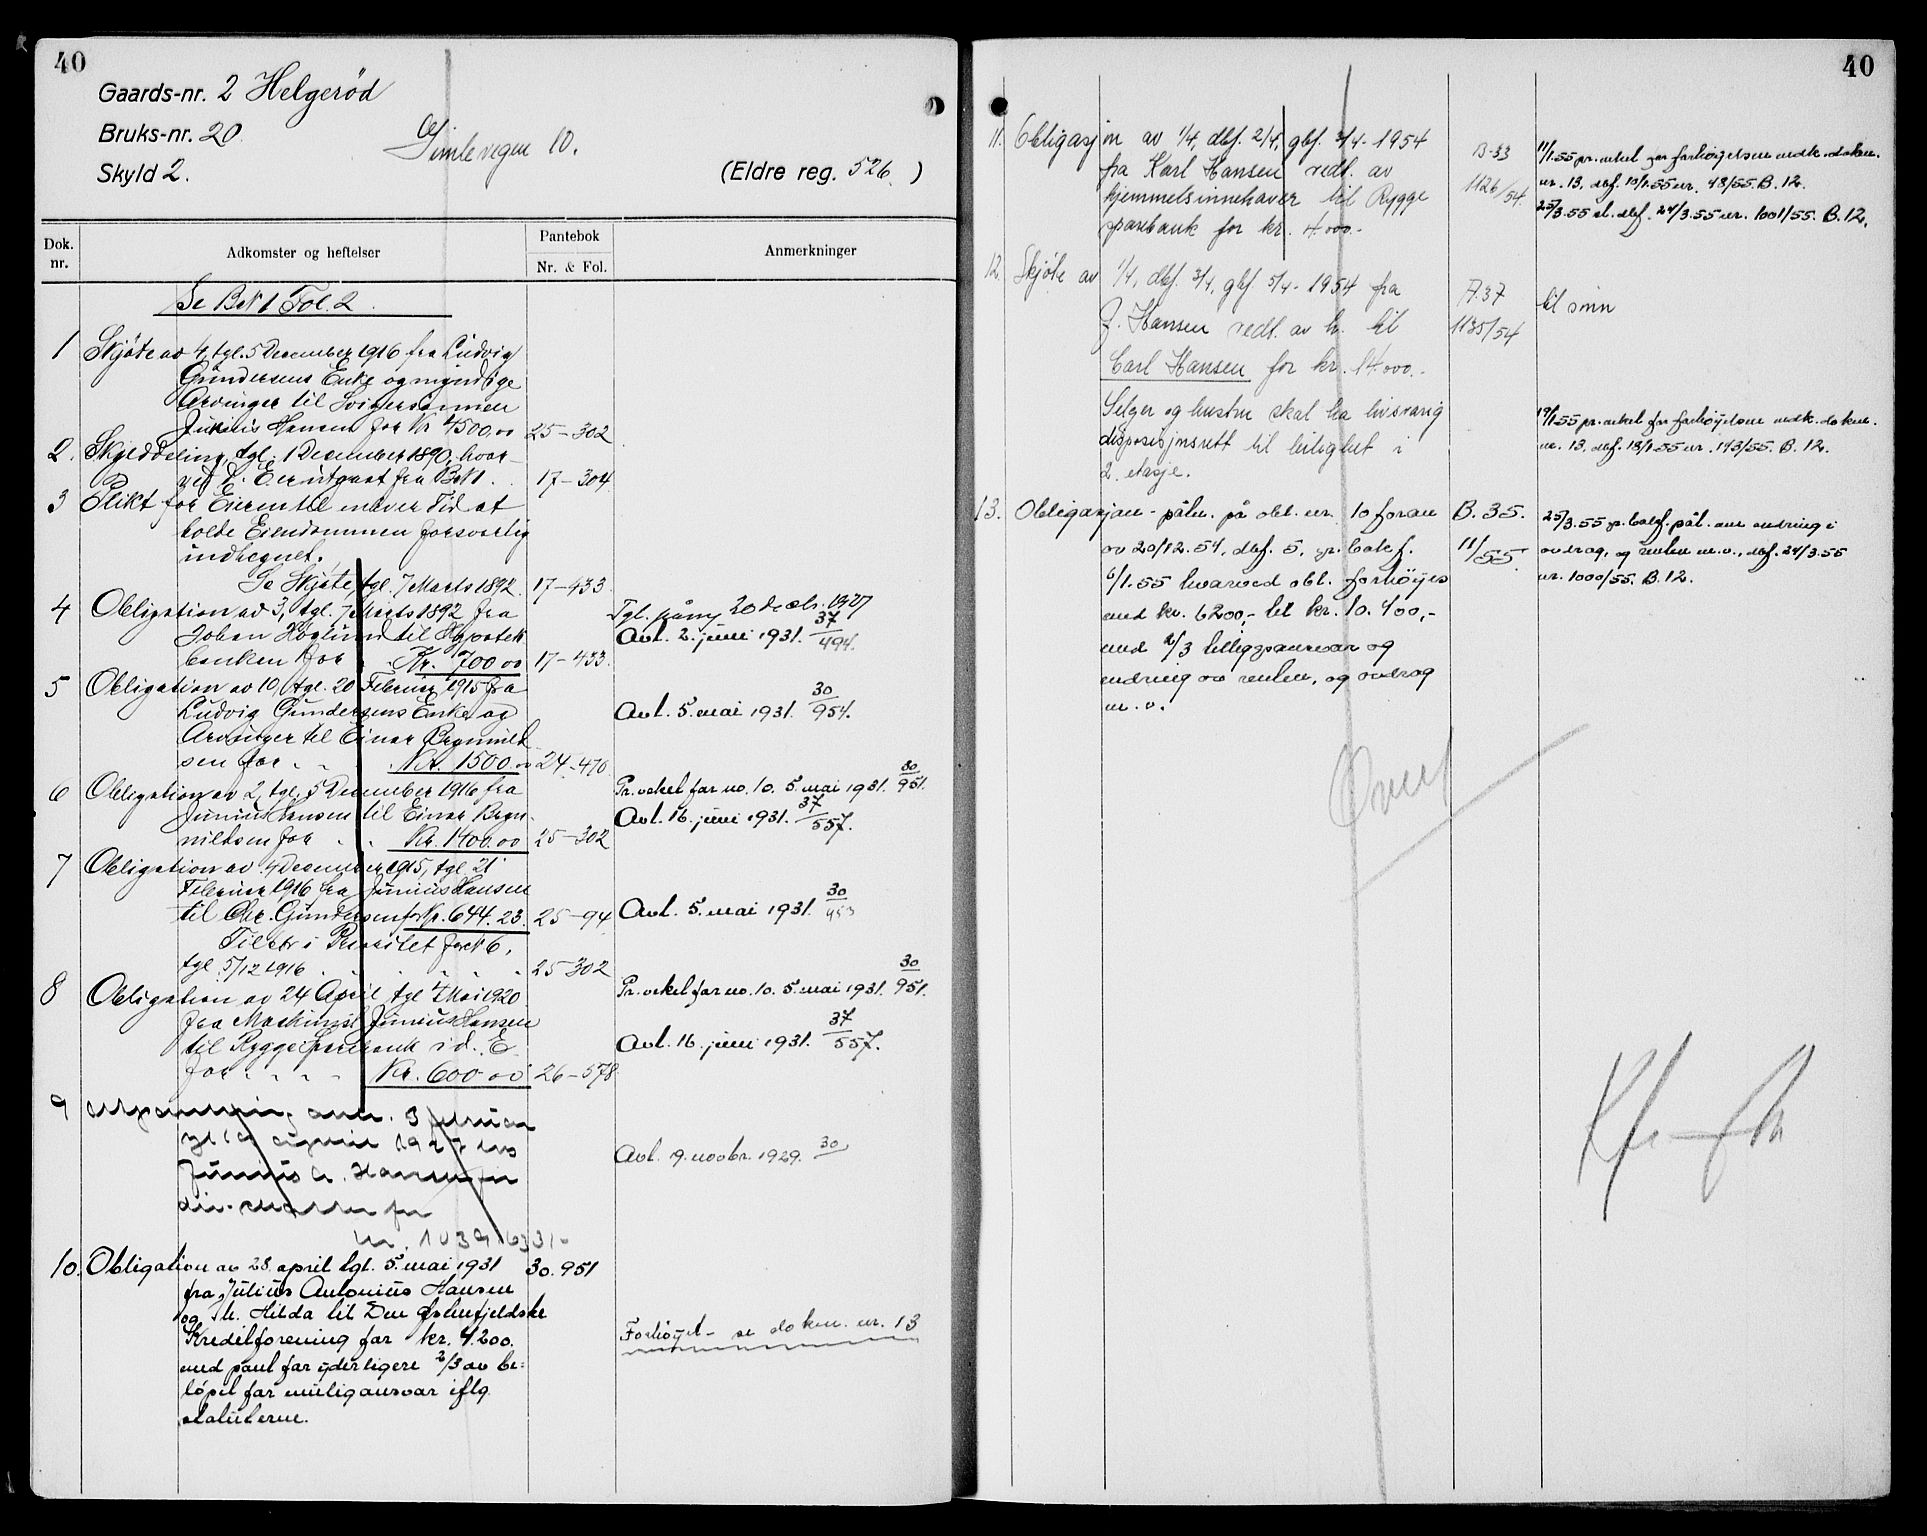 40
Gaards-nr. 2 Helgeröd
Bruks-nr. 20.
Simlevegen 10.
Skyld 2.
(Eldre reg. 526.)
Dok. nr.
Adkomster og heftelser
Pantebok
Nr. & Fol.
Anmerkninger
Se B.N 1 Fol. 2.
1 Skjöte av 4, tgl. 5 December 1916 fra Ludvig
Gundersens Enke og myndige
Arvinger til Svigersönnen
Junius Hansen for Kr 4500,00 25-302
2. Skylddeling, tgl. 1 December 1890, hvor-
ved d. E. er utgaat fra B.N 1. 17-304
3 Plikt for Eieren til enhver Tid at
holde Eiendommen forsvarlig
indhegnet.
Se Skjöte, tgl. 7 Marts 1892. 17-433
4 Obligation av 3, tgl. 7 Marts 1892 fra
Johan Höglund til Hypotek
banken for Kr. 700 00 17-433.
Tgl. påny 20 decbr. 1927
Avl. 2. juni 1931. 37/494.
5 Obligation av 10, tgl. 20 Februar 1915 fra
Ludvig Gundersens Enke og
Arvinger til Einar Brynild
sen for Kr. 1500.00 24-470
Avl. 5. mai 1931. 30/954.
6 Obligation av 2, tgl. 5 December 1916 fra
Junius Hansen til Einar Bryn-
nildsen for Kr. 1400.00 25-302
Pr. vekel for no. 10. 5. mai 1931. 30/951.
Avl. 16. juni 1931. 37/557.
7 Obligation av 4 December 1915, tgl. 21
Februar 1916 fra Junius Hansen
til Chr. Gundersen for Kr. 644.23. 25-94
Avl. 5. mai 1931. 30/953
Tilstr i Prioritet for N 6,
tgl 5/12 1916 25-302
8 Obligation av 24 April tgl 4 Mai 1920
fra Maskinist Junius Hansen
til Rygge Sparebank i d. E
for Kr. 600.00 26-578
Pr. vekel for no. 10. 5. mai 1931. 30/951.
Avl. 16. juni 1931. 37/557.
9 Utpantning 3 februar
1927 hos
Junius A. Hansen for
div. skatter for
kr. 1039.63
Avl. 9. novbr. 1929. 30
10. Obligation av 28. april tgl. 5. mai 1931 30.951
fra Julius Antonius Hansen
og h. Hilda til Den østenfjeldske
Kreditforening for kr. 4.200.
med pant for yderligere 2/3 av be=
löpet for mulig ansvar iflg.
statuterne.
Forhöyet - se dokm. nr. 13
40
11. Obligasjon av 1/4, dbf. 2/4, gbf. 3/4-1954
fra Karl Hansen vedt. av
hjemmelsinnehaver til Rygge
sparebank for kr. 4.000.-
B-33
1126/54.
11/1.55 pr. vekel for forhöyelsen medh. dokm.
nr. 13, dbf. 10/1.55 nr. 48/55. B.12.
25/3.55 d. dbf. 24/3.55 nr. 1001/55. B.12.
12. Skjöte av 1/4, dbf. 3/4, gbf 5/4-1954 fra
J. Hansen vedt. av h. til
Carl Hansen for kr. 14.000.-
Selger og hustru skal ha livsvarig
disposisjonsrett til leilighet i
2. etasje.
A.37
1135/54
til sönn
19/1.55 pr. vekel for forhöyelsen medh. dokm.
nr. 13, dbf. 18/1.55 nr. 143/55. B.12.
13. Obligasjon - påtn. på obl. nr. 10 foran
av 20/12.54, dbf. 5,
6/1.55 hvorved obl. forhöyes
med kr. 6200,- til kr. 10.400,-
med 2/3 tilleggsansvar og
endring av renten, og avdrag
m.v.
B. 35.
11/55.
25/3.55 påt. om endring i
avdrag, og renten m.v., dbf. 24/3.55
nr. 1000/55. B.12.